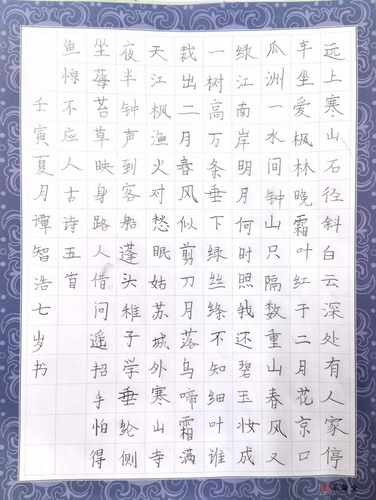 远上寒山石径斜白云深处有人家停
车坐爱枫林晚霜叶红于二月花京口
瓜洲一水间钟山只隔数重山春风又
绿江南岸明月何时照我还碧玉妆成
一树高万条垂下绿丝绦不知细叶谁
裁出二月春风似剪刀月落乌啼霜满
天江枫渔火对愁眠姑苏城外寒山寺
夜半钟声到客船蓬头稚子学垂纶侧
坐莓苔草映身路人借问遥招手怕得
鱼惊不应人古诗五首
壬寅夏月谭智浩七岁书